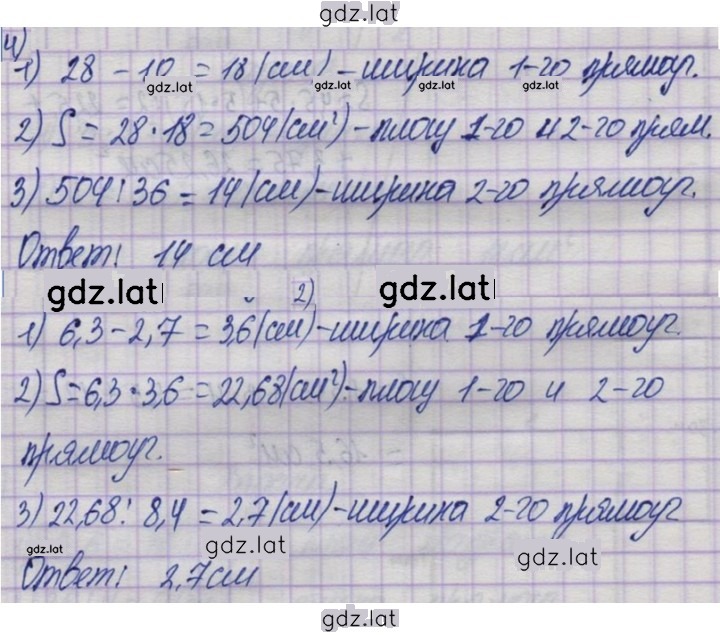 gdz.lat
4)
1) 28 - 10 = 18 (см) - ширина 1-го прямоуг.
gdz.lat gdz.lat gdz.lat gdz.lat
2) S = 28 · 18 = 504 (см²) - площ 1-го и 2-го прям.
3) 504 : 36 = 14 (см) - ширина 2-го прямоуг.
Ответ: 14 см
gdz.lat gdz.lat
2)
1) 6,3 - 2,7 = 3,6 (см) - ширина 1-го прямоуг.
2) S = 6,3 · 3,6 = 22,68 (см²) - площ 1-го и 2-го
прямоуг.
3) 22,68 : 8,4 = 2,7 (см) - ширина 2-го прямоуг
gdz.lat gdz.lat gdz.lat
Ответ: 2,7 см
gdz.lat